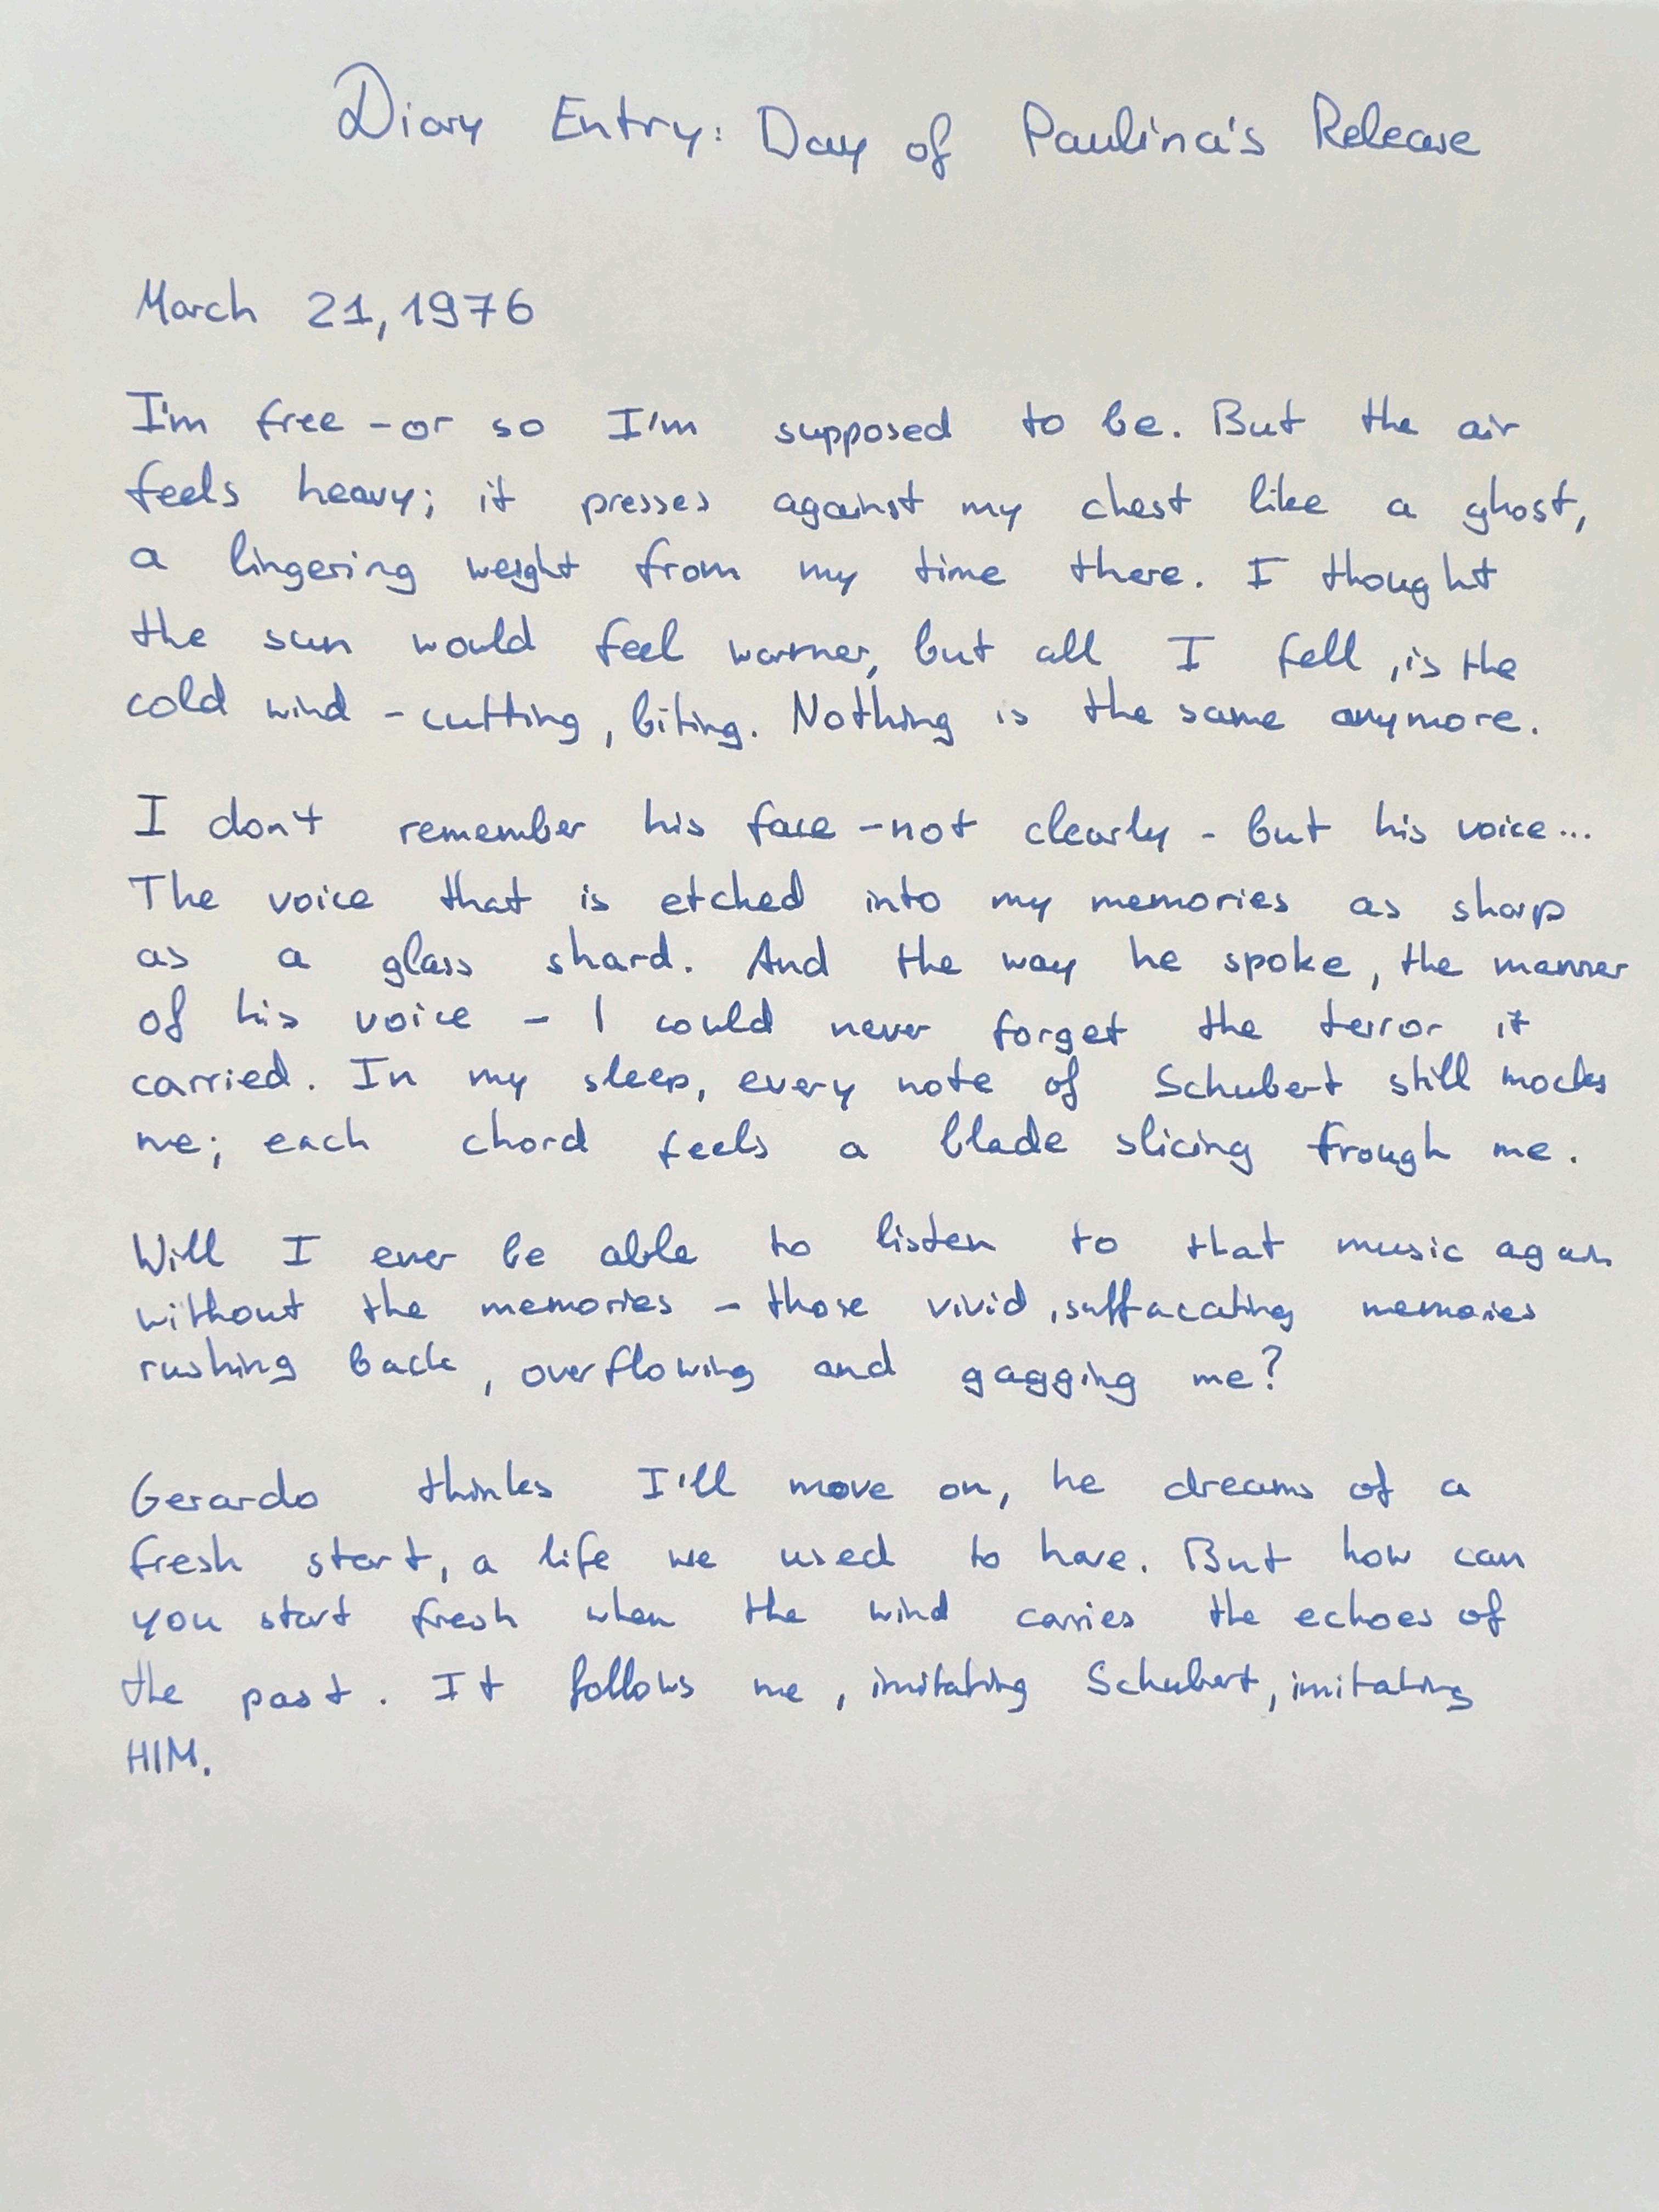 Diary Entry: Day of Paulina's Release
March 21, 1976
I'm free - or so I'm supposed to be. But the air
feels heavy; it presses against my chest like a ghost,
a lingering weight from my time there. I thought
the sun would feel warmer, but all I fell , is the
cold wind - cutting, biting. Nothing is the same anymore.
I don't remember his face - not clearly - but his voice...
The voice that is etched into my memories as sharp
as a glass shard. And the way he spoke, the manner
of his voice - I could never forget the terror it
carried. In my sleep, every note of Schubert still mocks
me; each chord feels a blade slicing frough me.
Will I ever be able to listen to that music again
without the memories - those vivid, suffacating memories
rushing back, overflowing and gagging me?
Gerardo thinks I'll move on, he dreams of a
fresh start, a life we used to have. But how can
you start fresh when the wind carries the echoes of
the past. It follows me, imitating Schubert, imitating
HIM.